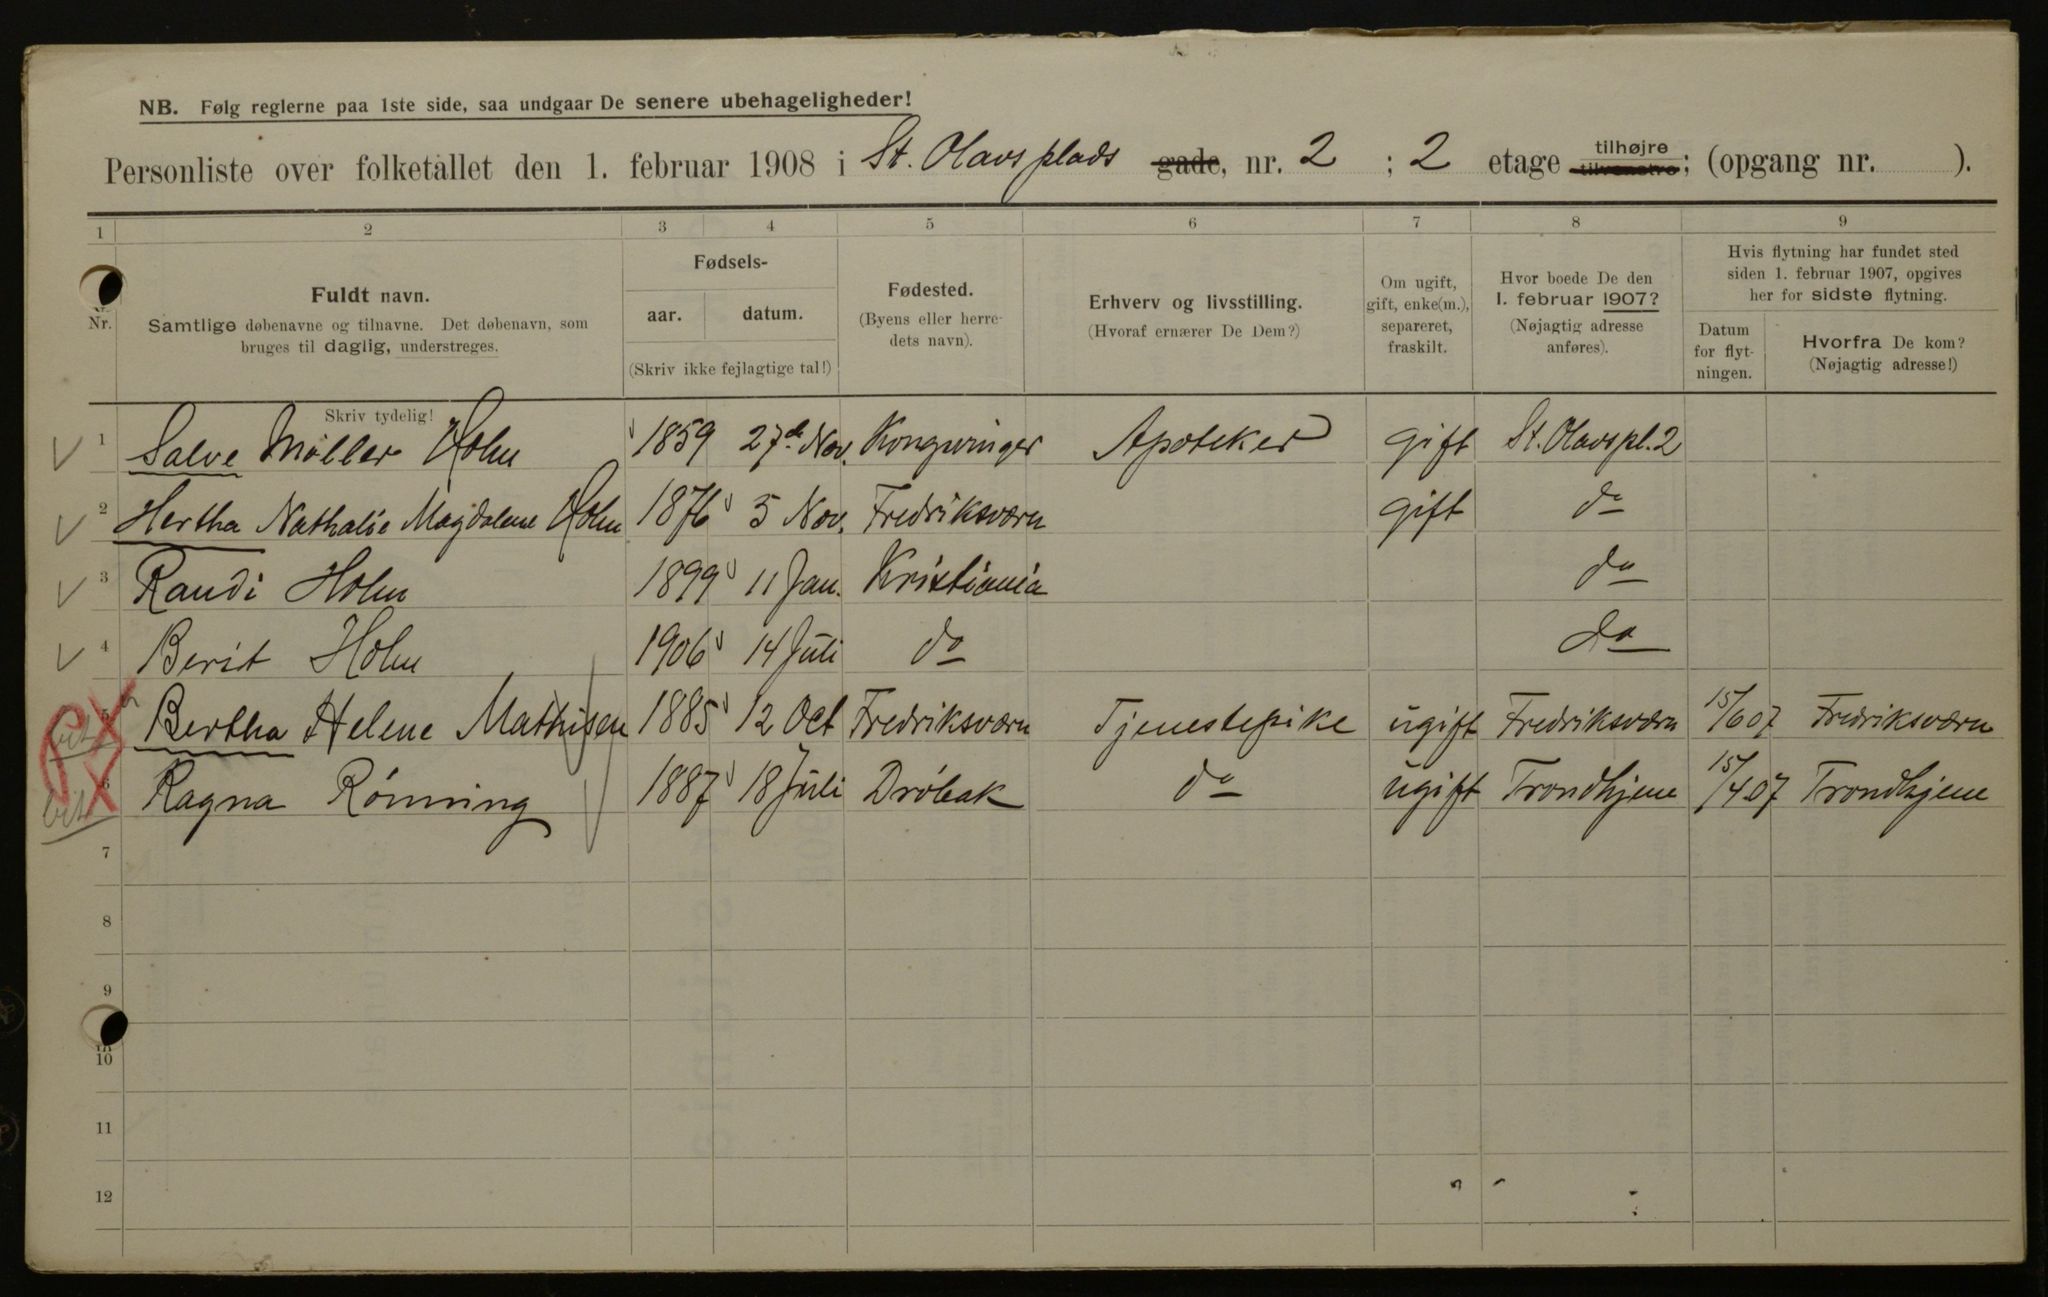 NB. Følg reglerne paa 1ste side, saa undgaar De senere ubehageligheder!
Personliste over folketallet den 1. februar 1908 i St. Olavsplads gade, nr. 2 ; 2 etage tilhøjre tilvenstre; (opgang nr. ).
1 2 3 4 5 6 7 8 9
Nr.
Fuldt navn.
Samtlige døbenavne og tilnavne. Det døbenavn, som
bruges til daglig, understreges.
Skriv tydelig!
Fødsels-
aar. datum.
(Skriv ikke fejlagtige tal!)
Fødested.
(Byens eller herre-
dets navn).
Erhverv og livsstilling.
(Hvoraf ernærer De Dem?)
Om ugift,
gift, enke(m.),
separeret,
fraskilt.
Hvor boede De den
1. februar 1907?
(Nøjagtig adresse
anføres).
Hvis flytning har fundet sted
siden 1. februar 1907, opgives
her for sidste flytning.
Datum
for flyt-
ningen.
Hvorfra De kom?
(Nøjagtig adresse!)
1 Salve Møller Holm 1859 27de Nov. Kongsvinger Apoteker gift St. Olavspl. 2
2 Hertha Nathalie Magdalene Holm 1876 5 Nov. Fredriksværn gift do
3 Randi Holm 1899 11 Jan. Kristiania do
4 Berit Holm 1906 14 Juli do do
5 Bertha Helene Mathisen 1885 12 Oct Fredriksværn Tjenestepike ugift Fredriksværn 15/6 07 Fredriksværn
6 Ragna Rønning 1887 18 Juli Drøbak do ugift Trondhjem 15/4 07 Trondhjem
7
8
9
10
11
12